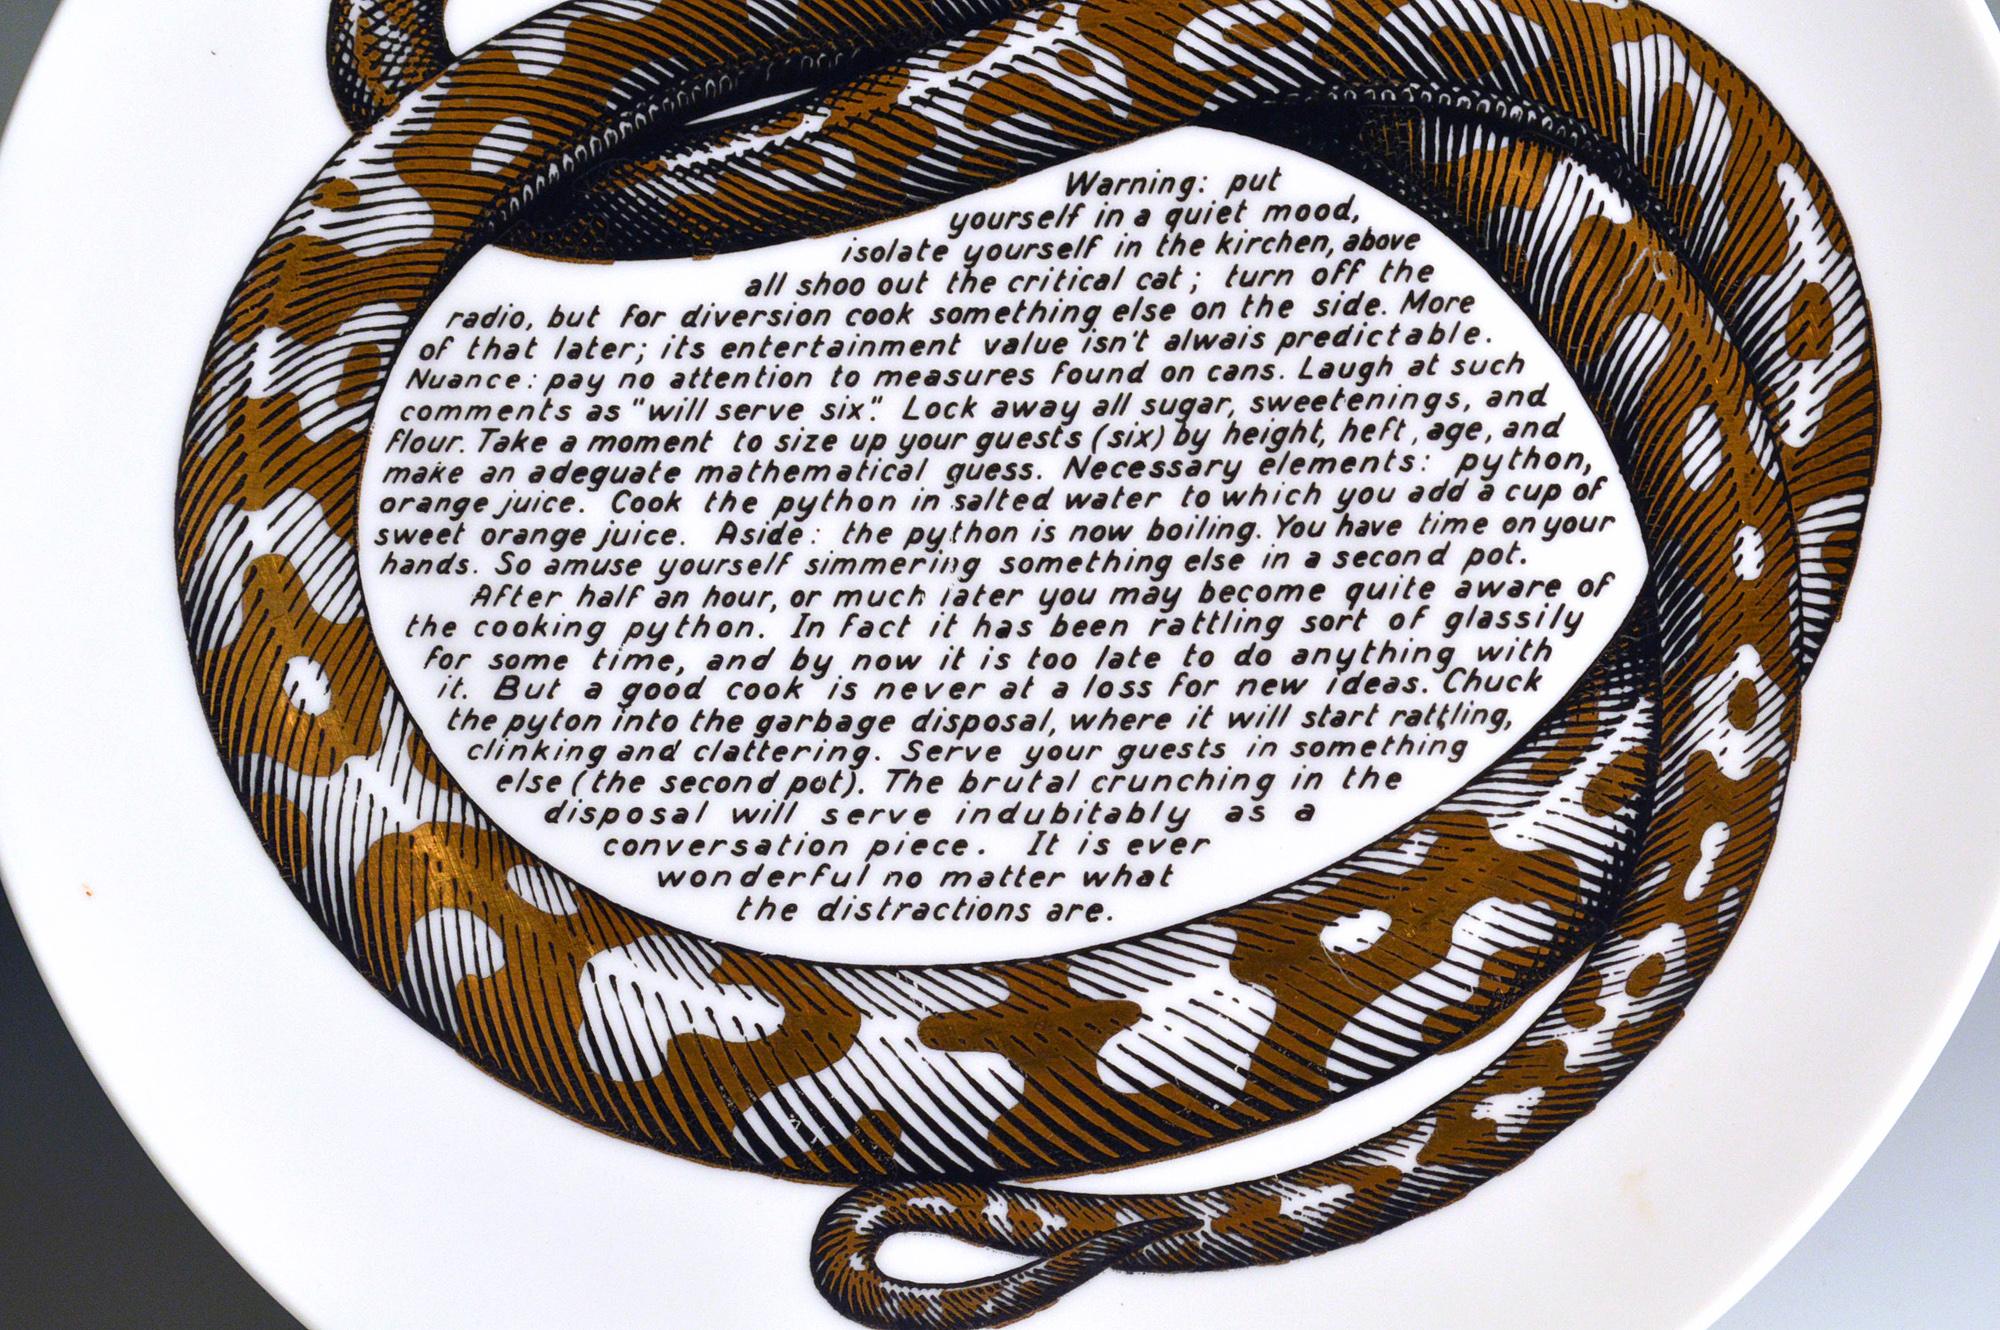 Warning: put
yourself in a quiet mood,
isolate yourself in the kirchen, above
all shoo out the critical cat; turn off the
radio, but for diversion cook something else on the side. More
of that later; its entertainment value isn't alwais predictable.
Nuance: pay no attention to measures found on cans. Laugh at such
comments as "will serve six". Lock away all sugar, sweetenings, and
flour. Take a moment to size up your guests (six) by height, heft, age, and
make an adeguate mathematical guess. Necessary elements: python,
orange juice. Cook the python in salted water to which you add a cup of
sweet orange juice. Aside: the python is now boiling. You have time on your
hands. So amuse yourself simmering something else in a second pot.
After half an hour, or much later you may become quite aware of
the cooking python. In fact it has been rattling sort of glassily
for some time, and by now it is too late to do anything with
it. But a good cook is never at a loss for new ideas. Chuck
the pyton into the garbage disposal, where it will start rattling,
clinking and clattering. Serve your guests in something
else (the second pot). The brutal crunching in the
disposal will serve indubitably as a
conversation piece. It is ever
wonderful no matter what
the distractions are.